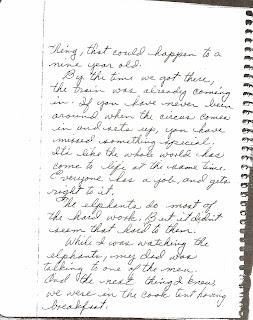 thing, that could happen to a
nine year old.
By the time we got there,
the train was already coming
in. If you have never been
around when the circus comes
in and sets up, you have
missed something special.
It's like the whole world has
come to life at the same time.
Everyone has a job, and gets
right to it.
The elephants do most of
the hard work. But it didn't
seem that hard to them.
While I was watching the
elephants, my dad was
talking to one of the men.
And the next thing I knew,
we were in the cook tent having
breakfast.